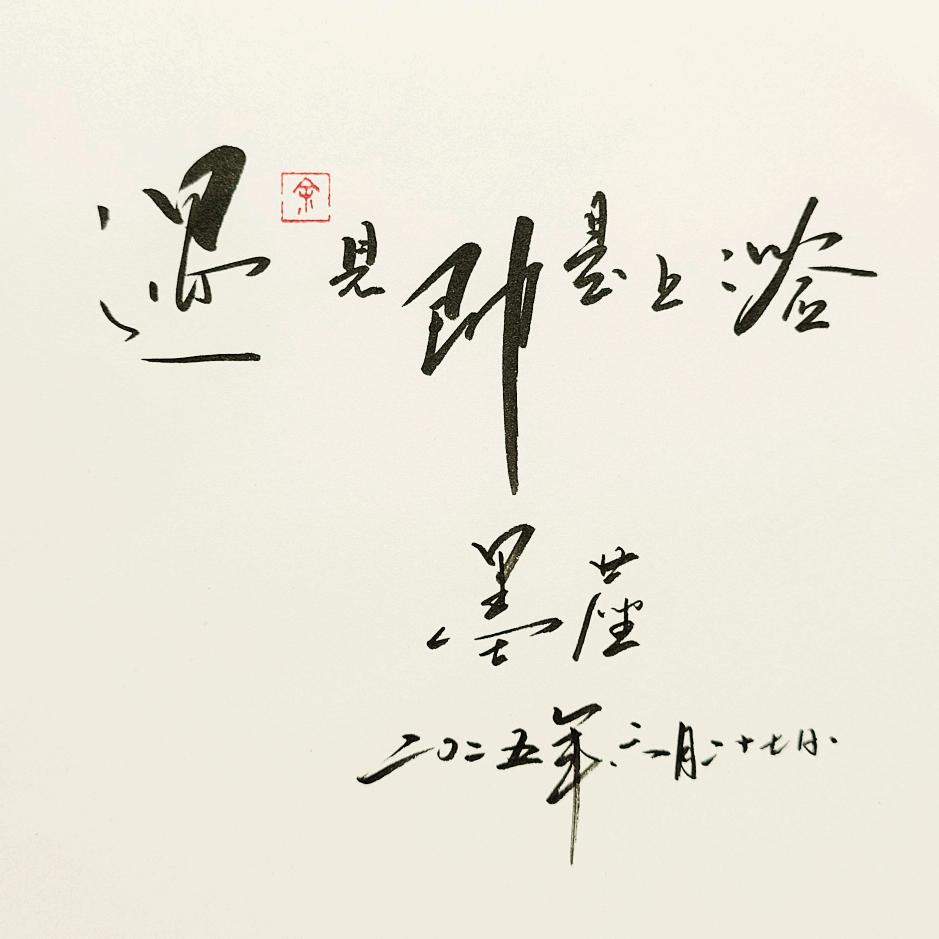 遇見即是上
余
墨
二〇二五年六月二十七日